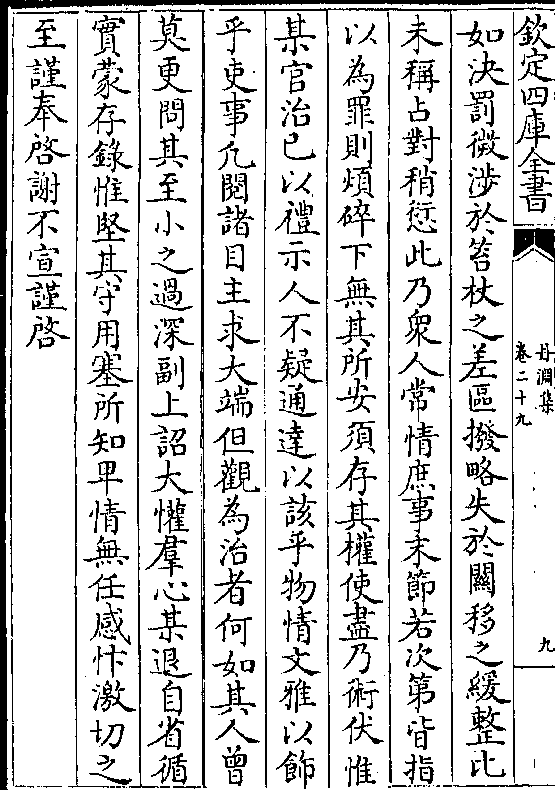 欽定四庫全書
丹淵集
卷二十九
九
如決罰微涉於笞杖之差區撥略失於關移之緩整比
未稱占對稍愆此乃衆人常情庶事末節若次第皆指
以為罪則煩碎下無其所安須存其權使盡乃術伏惟
某官治已以禮示人不疑通達以該乎物情文雅以飾
乎吏事凡閱諸目主求大端但觀為治者何如其人曾
莫更問其至小之過深副上詔大懽羣心某退自省循
實蒙存錄惟堅其守用塞所知卑情無任感忭激切之
至謹奉啓謝不宣謹啓